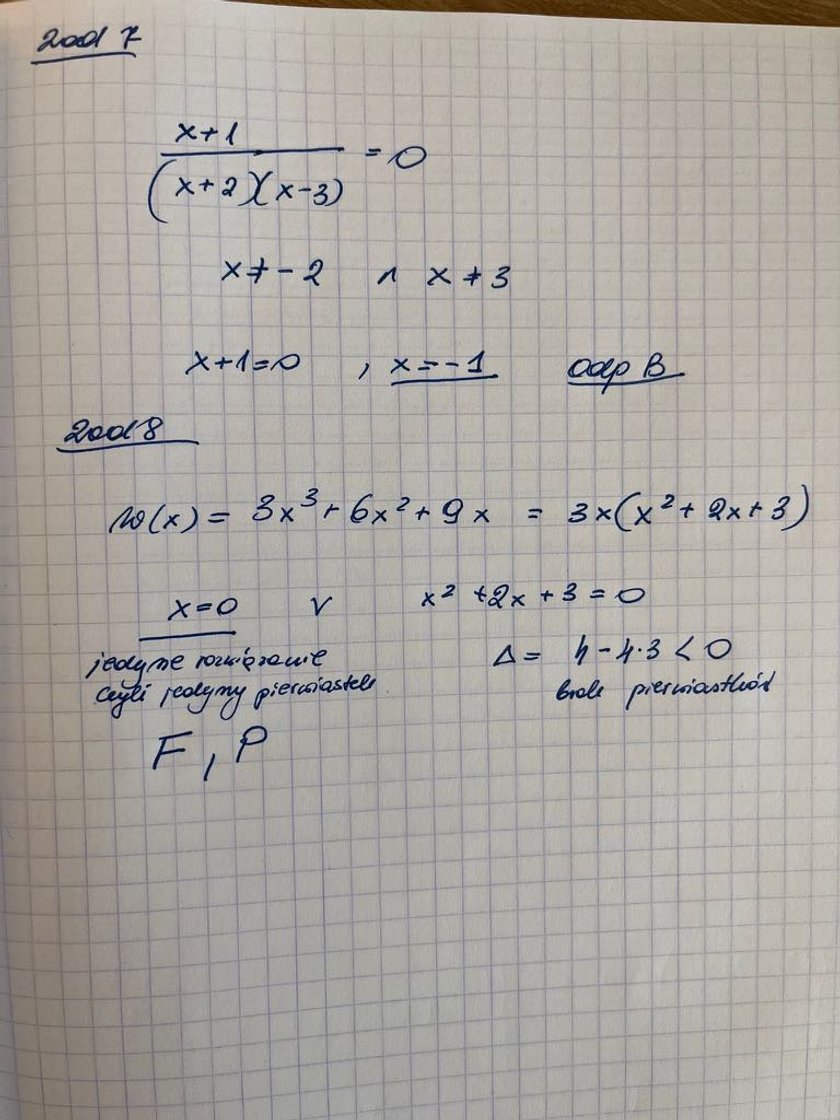 zad 7
x+1
(x+2)(x-3)
= 0
x ≠ -2 ∧ x ≠ 3
x+1=0 , x=-1 odp B
zad 8
W(x) = 3x³ + 6x² + 9x = 3x(x² + 2x + 3)
x=0 ∨ x² + 2x + 3 = 0
jedyne rozwiązanie
czyli jedyny pierwiastek
Δ = 4 - 4·3 < 0
brak pierwiastków
F, P